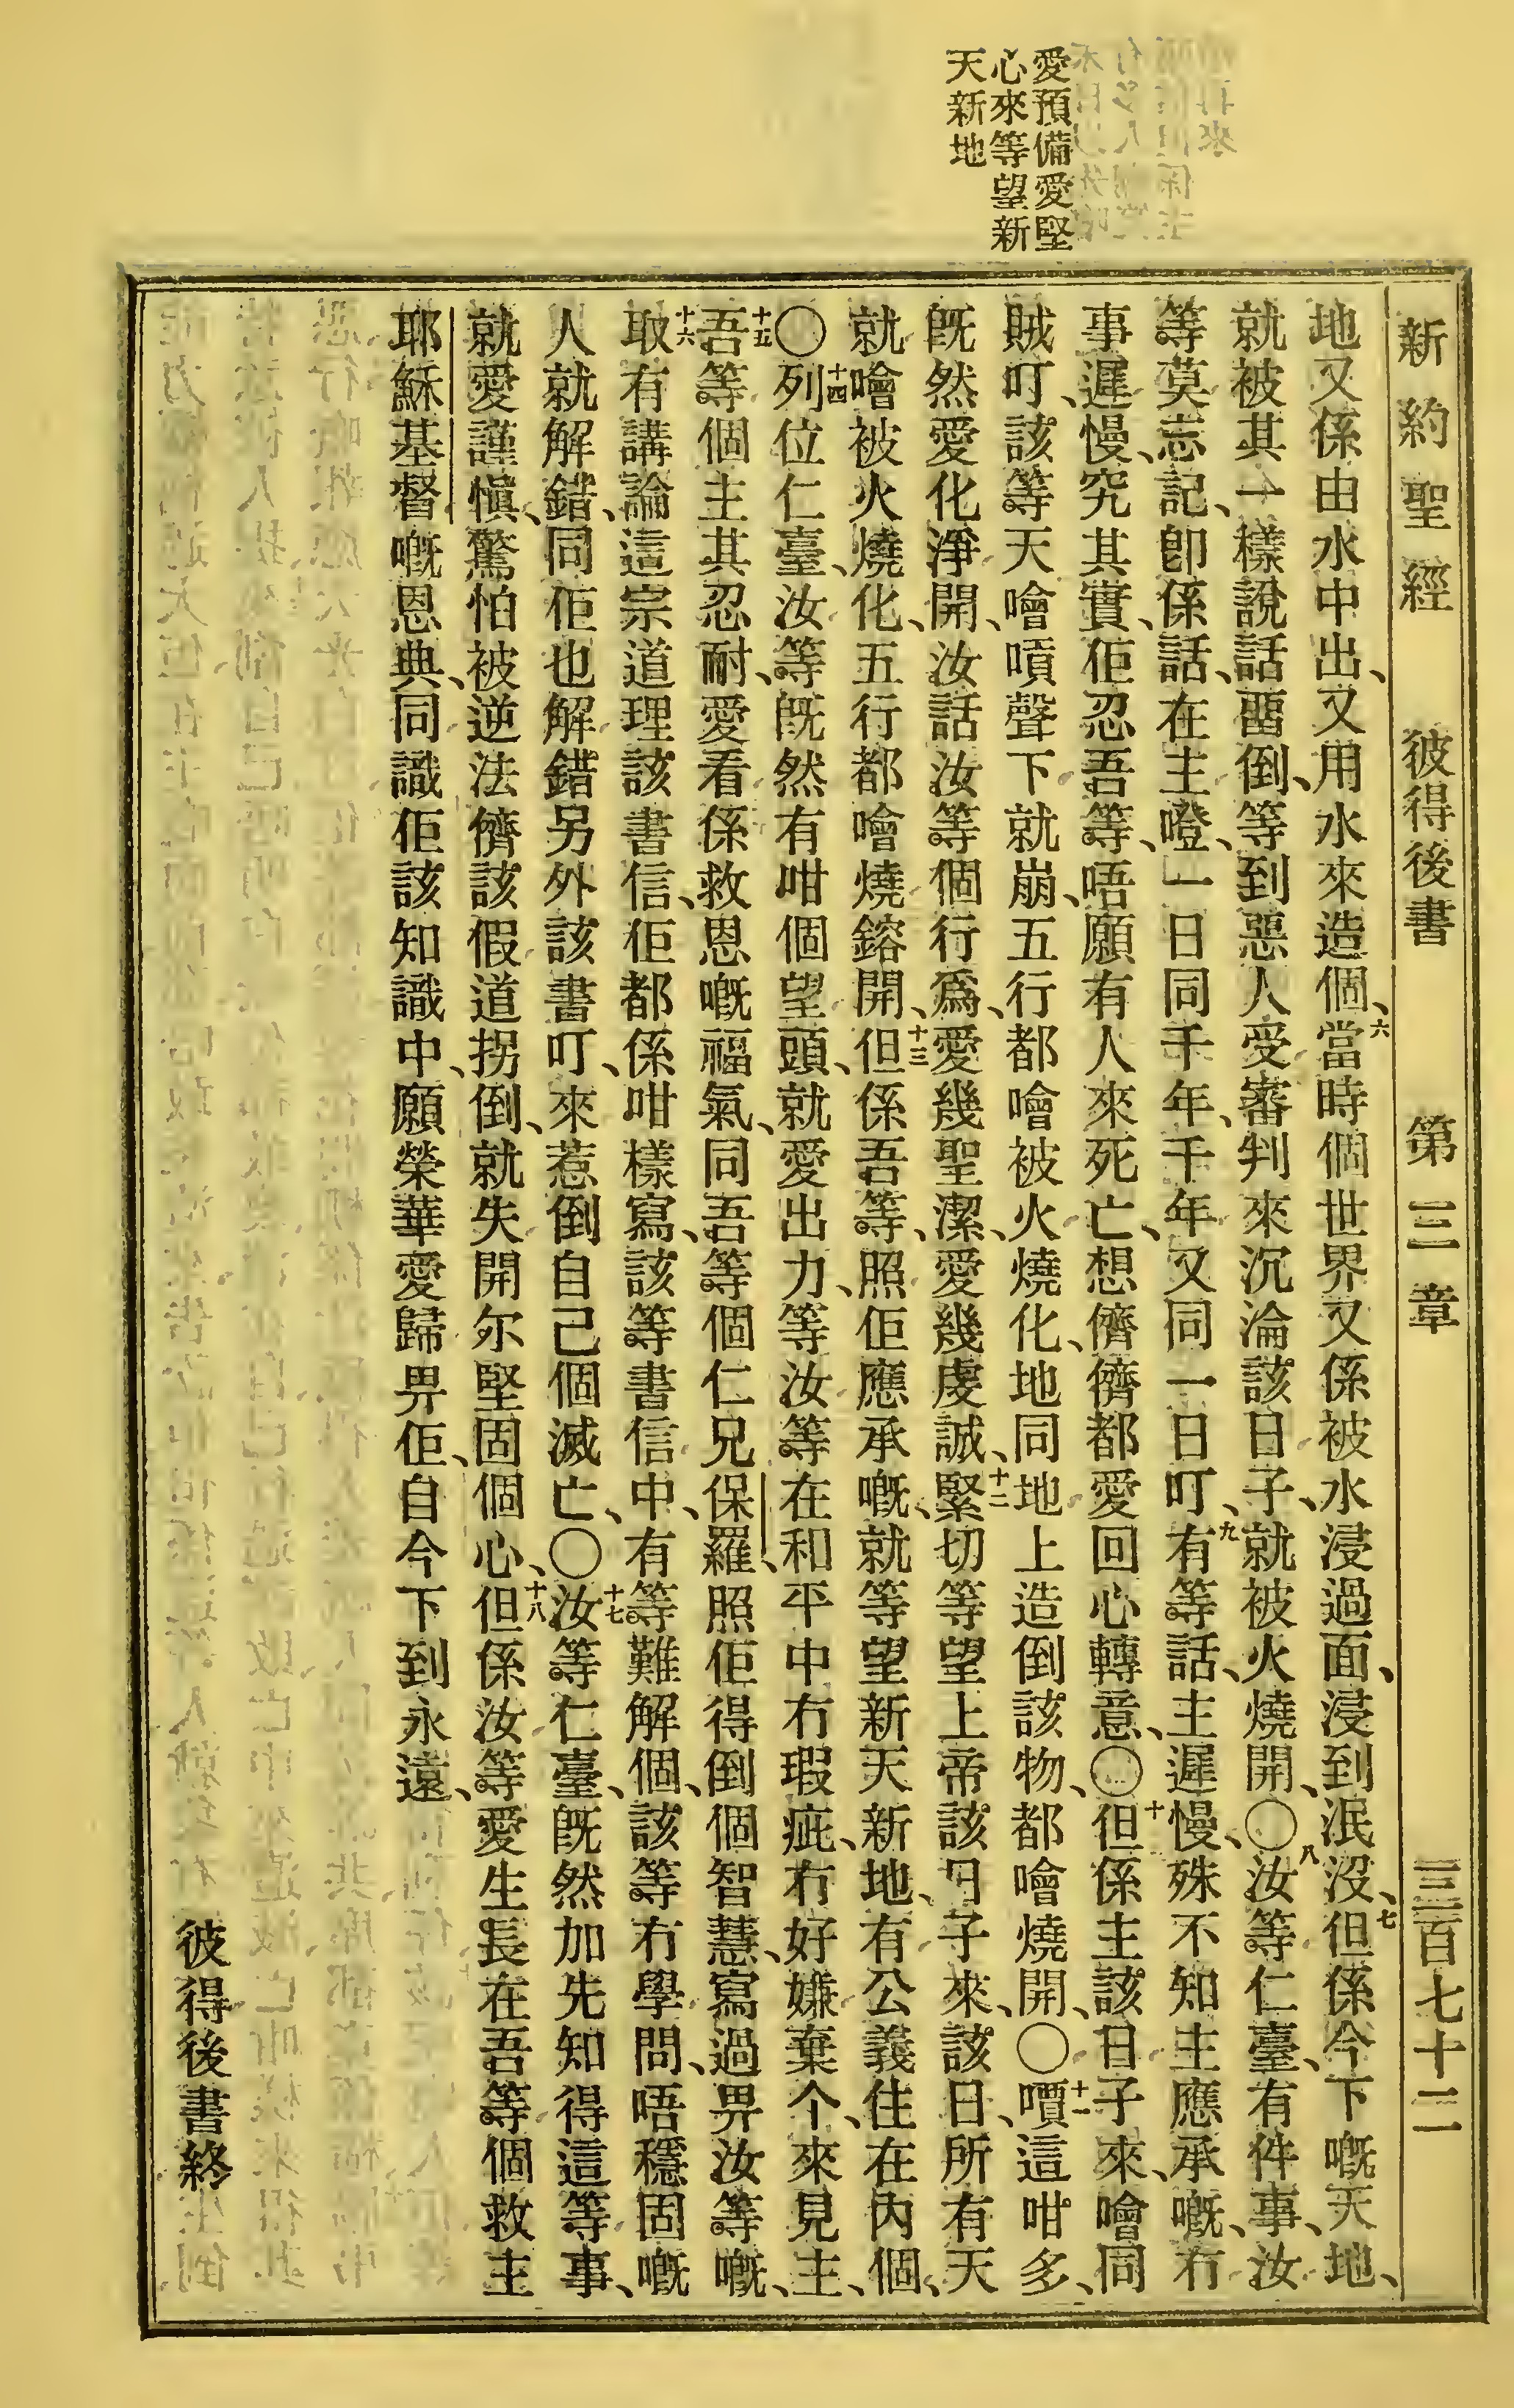 愛預備愛堅
心來等望新
天新地
新約聖經 彼得後書 第三章 三百七十二
地又係由水中出、又用水來造個、六當時個世界又係被水浸過面、浸到泯沒、七但係今下嘅天地、
就被其一樣說話畱倒、等到惡人受審判來沉淪該日子、就被火燒開、〇八汝等仁臺、有件事、汝
等莫忘記、卽係話、在主噔、一日同千年、千年又同一日叮、九有等話、主遲慢、殊不知主應承嘅、冇
事遲慢、究其實、佢忍吾等、唔願有人來死亡、想儕儕都愛回心轉意、〇十但係主該日子來、噲同
賊叮、該等天噲嗊聲下就崩、五行都噲被火燒化、地同地上造倒該物、都噲燒開、〇十一嘳這咁多、
旣然愛化淨開、汝話汝等個行爲、愛幾聖潔、愛幾虔誠、十二緊切等望上帝該日子來、該日、所有天
就噲被火燒化、五行都噲燒鎔開、十三但係吾等、照佢應承嘅、就等望新天新地、有公義住在內個、
〇十四列位仁臺、汝等旣然有咁個望頭、就愛出力、等汝等在和平中冇瑕疵、冇好嫌棄个、來見主、
十五吾等個主其忍耐、愛看係救恩嘅福氣、同吾等個仁兄保羅、照佢得倒個智慧、寫過畀汝等嘅、
十六取有講論這宗道理該書信、佢都係咁樣寫、該等書信中、有等難解個、該等冇學問、唔穩固嘅
人就解錯、同佢也解錯另外該書叮、來惹倒自己個滅亡、〇十七汝等仁臺、旣然加先知得這等事、
就愛謹愼、驚怕被逆法儕該假道拐倒、就失開尔堅固個心、十八但係汝等愛生長在吾等個救主
耶穌基督嘅恩典、同識佢該知識中、願榮華愛歸畀佢、自今下到永遠、
彼得後書終